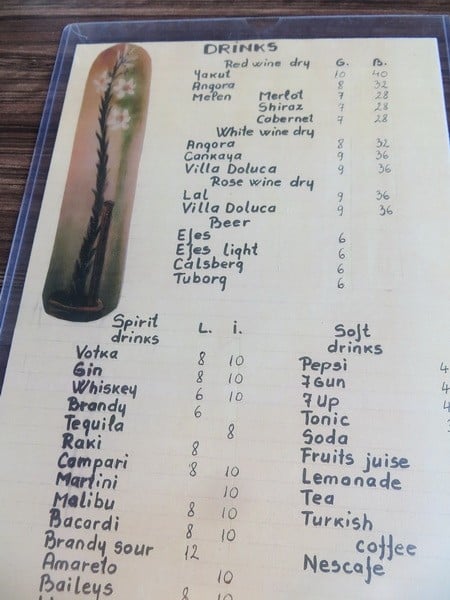 DRINKS
Red wine dry G. B.
Yakut 10 40
Angora 8 32
Melen Merlot 7 28
Shiraz 7 28
Cabernet 7 28
White wine dry
Angora 8 32
Cankaya 9 36
Villa Doluca 9 36
Rose wine dry
Lal 9 36
Villa Doluca 9 36
Beer
Efes 6
Efes light 6
Calsberg 6
Tuborg 6
Spirit drinks L. i.
Votka 8 10
Gin 8 10
Whiskey 6 10
Brandy 6
Tequila 8
Raki 8
Campari 8 10
Martini 10
Malibu 8 10
Bacardi 8 10
Brandy sour 12
Amareto 10
Baileys 8 10
Soft
drinks
Pepsi 4
7Gun 4
7Up 4
Tonic
Soda
Fruits juise
Lemonade
Tea
Turkish
coffee
Nescafe